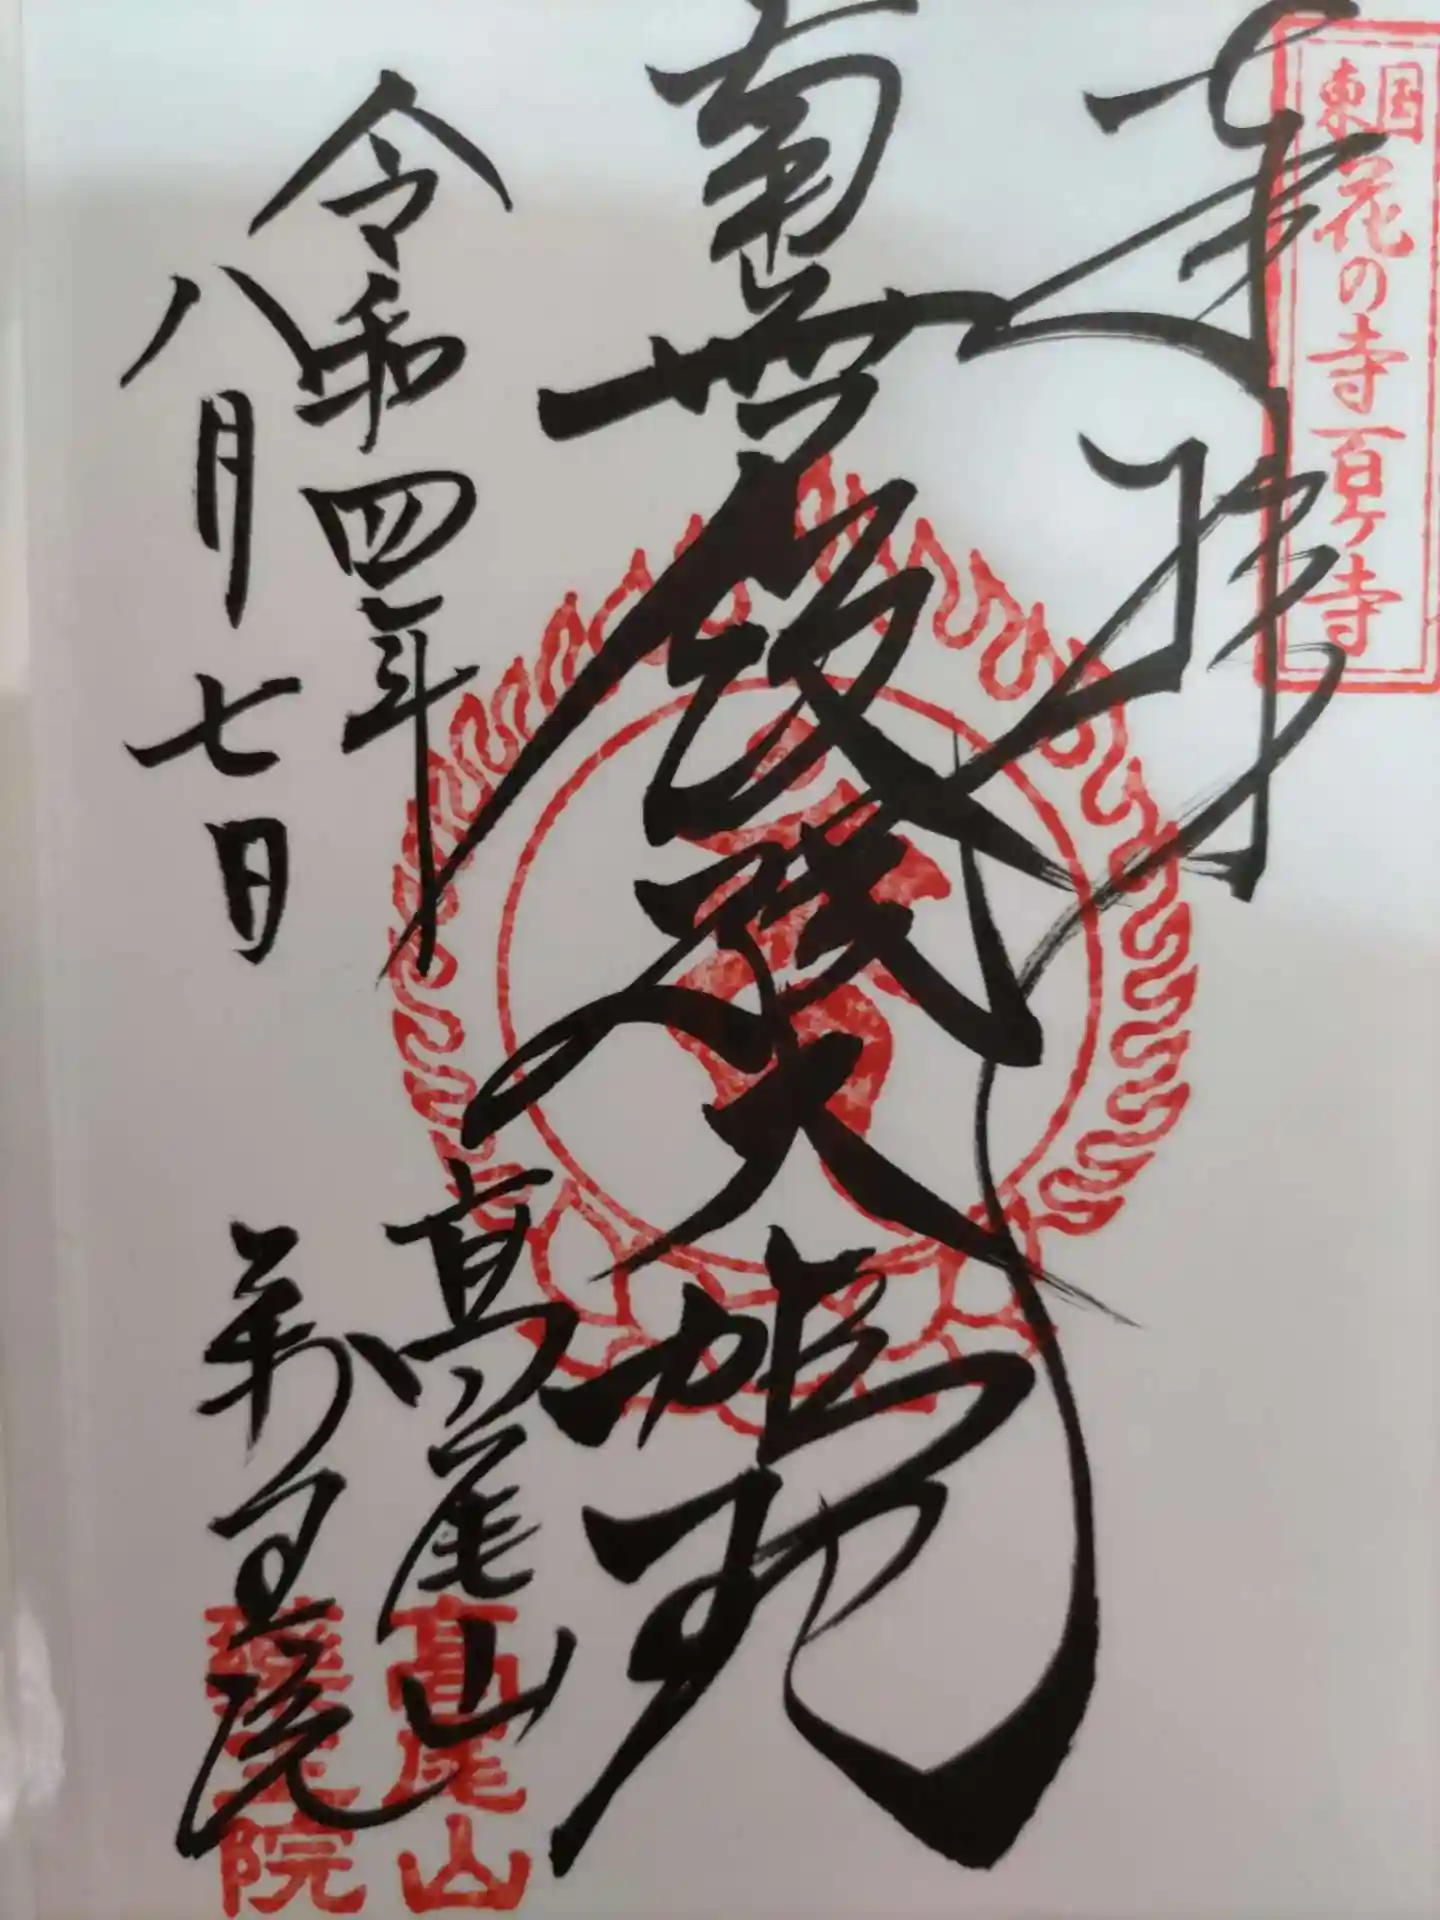 東国花の寺百ヶ寺
奉拝
南無飯縄大権現
令和四年
八月七日
高尾山
薬王院
高尾山
薬王院